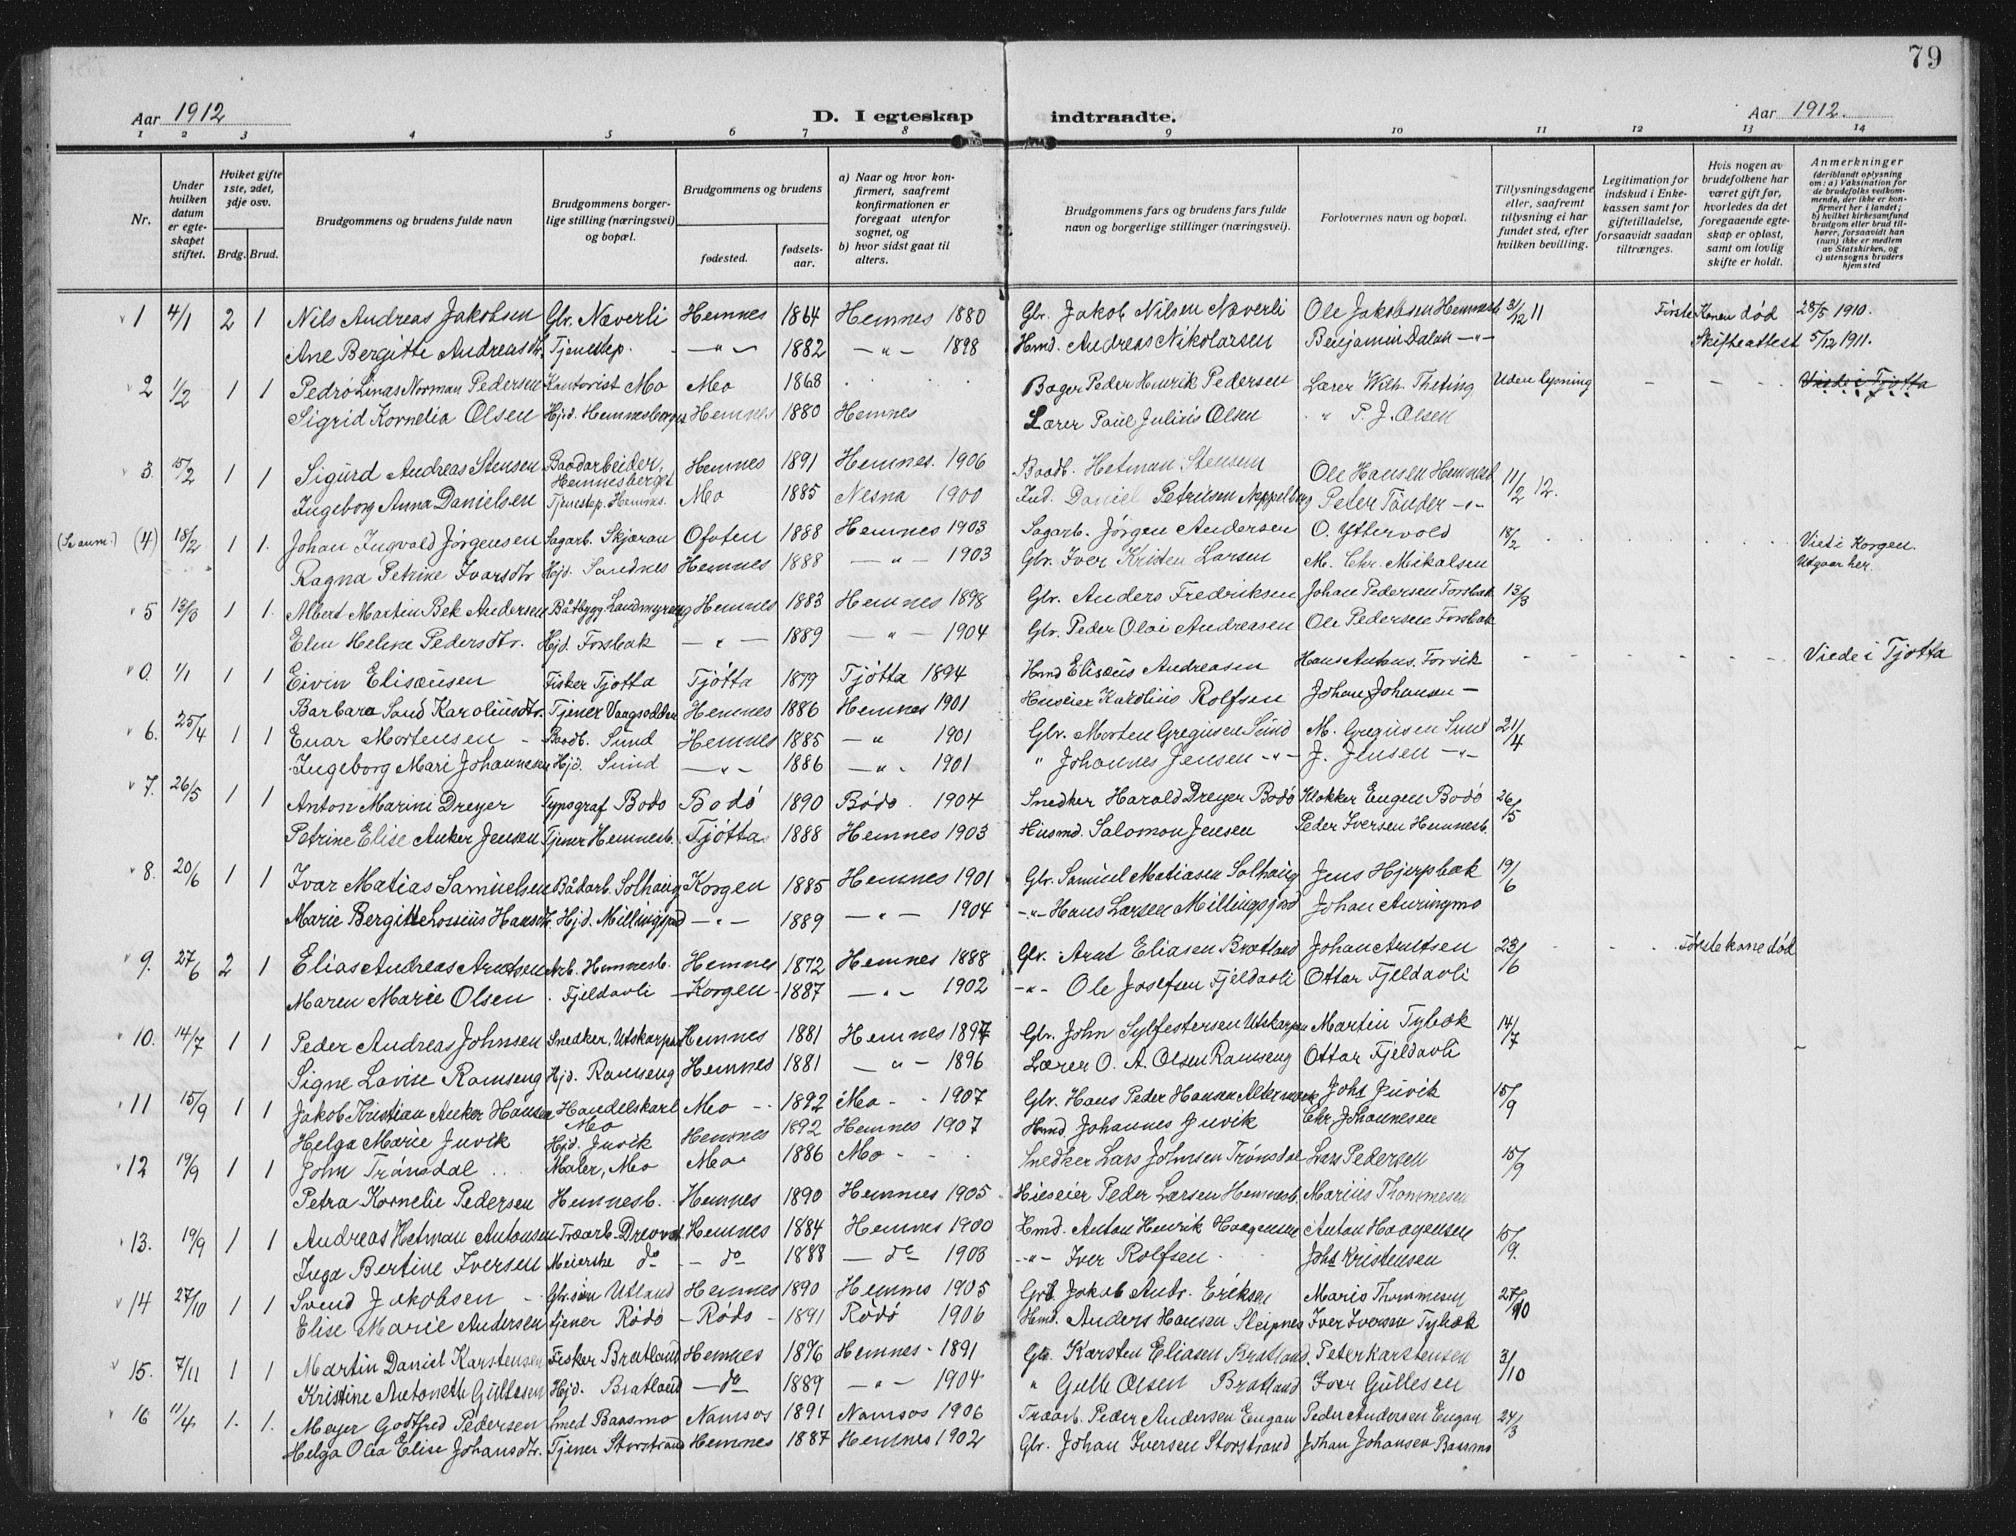 79
Aar 1912
D. I egteskap indtraadte.
Aar 1912.
1 2 3 4 5 6 7 8 9 10 11 12 13 14
Nr.
Under hvilken datum er egteskapet stiftet.
Hviket gifte 1ste, 2det, 3dje osv.
Brdg. Brud.
Brudgommens og brudens fulde navn
Brudgommens borgerlige stilling (næringsvei) og bopæl.
Brudgommens og brudens
fødested.
fødselsaar.
a) Naar og hvor konfirmert, saafremt konfirmationen er foregaat utenfor sognet, og
b) hvor sidst gaat til alters.
Brudgommens fars og brudens fars fulde navn og borgerlige stillinger (næringsvei).
Forlovernes navn og bopæl.
Tillysningsdagene eller, saafremt tillysning ei har fundet sted, efter hvilken bevilling.
Legitimation for indskud i Enkekassen samt for giftetilladelse, forsaavidt saadan tiltrænges.
Hvis nogen av brudefolkene har været gift før, hvorledes da det foregaaende egteskap er opløst, samt om lovlig skifte er holdt.
Anmerkninger (deriblandt oplysning om: a) Vaksination for de brudefolks vedkommende, der ikke er konfirmert her i landet; b) hvilket kirkesamfund brudgom eller brud tilhører, forsaavidt han (hun) ikke er medlem av Statskirken, og c) utensogns bruders hjemsted
1 4/1 2 1 Nils Andreas Jakobsen Gbr. Næverli Hemnes 1864 Hemnes 1880 Gbr. Jakob Nilsen Næverli Ole Jakobsen Hemnesb 3/12 11 Første Konen død 28/5 1910.
Ane Bergitte Andreasdtr. Tjenestep. — " — 1882 — " — 1898 Hmd. Andreas Nikolaisen Benjamin Dalan — " — Skifteattest 5/12 1911.
2 1/2 1 1 Pedro Linas Norman Pedersen Kontorist Mo Mo 1868 Bager Peder Henrik Pedersen Lærer Wilh. Theting Uden lysning — — — Viede i Tjøtta
Sigrid Kornelia Olsen Hjd. Hemnesberget Hemnes 1880 Hemnes Lærer Paul Julius Olsen " P. J. Olsen
3. 15/2 1 1 Sigurd Andreas Stensen Baadarbeider, Hemnesberget Hemnes 1891 Hemnes. 1906 Baadb. Hetman Stensen Ole Hansen Hemnesb 11/2 12.
Ingeborg Anna Danielsen Tjenestep. Hemnes. Mo 1885 Nesna 1900 Ind. Daniel Petrilsen Neppelberg Peter Tønder — " —
(Se anm.) (4) 18/2 1 1. Johan Ingvald Jørgensen Sagarb. Skjæran Ofoten 1888 Hemnes 1903 Sagarb. Jørgen Andersen O. Yttervold 18/2 Viet i Korgen. Utgaar her.
Ragna Petrine Ivarsdtr Hjd. Sandnes Hemnes 1888 — " — 1903 Gbr. Iver Kristen Larsen M. Chr. Mikalsen
5 13/3 1 1. Albert Martin Bek Andersen Båtbygg Landmyreng Hemnes 1883 Hemnes 1898 Gbr. Anders Fredriksen Johan Pedersen Forsbak 13/3
Elen Helene Pedersdtr. Hjd. Forsbak — " — 1889 — " — 1904 Gbr. Peder Olai Andreasen Ole Pedersen Forsbak
0. 1/1 1 1 Eivin Elisæusen Fisker Tjøtta Tjøtta 1879 Tjøtta 1894 Hmd Elisæus Andreasen Hans Antons. Forvik — — — — Viede i Tjøtta
Barbara Sand Karoliusdtr. Tjener Vaagsodden Hemnes 1886 Hemnes 1901 Huseier Karolius Rolfsen Johan Johansen —
6. 25/4 1 1 Einar Mortensen Baadb. Sund Hemnes 1885 — " 1901 Gbr. Morten Gregusen Sund M. Gregusen Sund 21/4
Ingeborg Mari Johannesen Hjd. Sund — " — 1886 — " — 1901 " Johannes Jensen — " — J. Jensen — " —
7. 26/5 1 1 Anton Marini Dreyer Typograf Bodø Bodø 1890 Bodø. 1904 Snedker Harald Dreyer Bodø Klokker Eugen Bodø 26/5
Petrine Elise Anker Jensen Tjener Hemnesb. Tjøtta 1888 Hemnes 1903 Husmd. Salomon Jensen Peder Iversen Hemnesb.
8. 20/6 1 1 Ivar Matias Samuelsen Bådarb. Solhaug Korgen 1885 Hemnes 1901 Gbr. Samuel Matiasen Solhaug Jens Hjerpbak 19/6
Marie Bergitte Lossius Hansdtr. Hjd. Millingsjord — " — 1889 — " — 1904 — " — Hans Larsen Millingsjord Johan Auringmo
9. 27/6 2 1 Elias Andreas Arntsen Arb. Hemnesb. Hemnes 1872 Hemnes 1888 Gbr. Arnt Eliasen Bratland Johan Arntsen 23/6 Første kone død
Maren Marie Olsen Fjeldavli Korgen 1887 — " — 1902 — " — Ole Josefsen Fjeldavli Ottar Fjeldavli
10. 14/7 1 1 Peder Andreas Johnsen Snedker, Utskarpen Hemnes 1881 Hemnes 1897 Gbr. John Sylfestersen Utskarpen Martin Tybæk 14/7
Signe Lovise Ramseng Hjd. Ramseng Hemnes 1881 — " — 1896 Lærer O. A. Olsen Ramseng Ottar Fjeldavli
11 15/9 1 1 Jakob Kristian Anker Hansen Handelskarl Mo Mo 1892 Mo 1907 Gbr. Hans Peder Hansen Altermark Johs Juvik 15/9
Helga Marie Juvik Hjd. Juvik Hemnes 1892 Hemnes 1907 Hmd. Johannes Juvik Chr. Johannesen
12 19/9 1 1 John Trønsdal Maler, Mo Mo 1886 Mo Snedker Lars Johnsen Trønsdal Lars Pedersen 15/9
Petra Kornelie Pedersen Hemnesb. Hemnes 1890 Hemnes 1905 Huseier Peder Larsen Hemnesb. Marius Thommesen
13. 19/9 1 1 Andreas Hetman Antonsen Træarb. Drevvat. Hemnes 1884 Hemnes 1900 Hmd. Anton Henrik Haagensen Anton Haagensen 15/9.
Inga Bertine Iversen Meierske do — do 1888 — do 1903 — " — Iver Rolfsen Johs Kristensen
14 27/10 1 1 Svend Jakobsen Gbr.søn Utland Hemnes 1890 Hemnes 1905 Grb. Jakob Andr. Eriksen Maris Thommesen 27/10
Elise Marie Andersen tjener Rødø Rødø 1891 Rødø 1906 Hmd. Anders Hansen Sleipnes Iver Iversen Tybæk
15. 7/11 1 1 Martin Daniel Karstensen Fisker Bratland Hemnes 1876 Hemnes 1891 Gbr. Karsten Eliasen Bratland Peter Karstensen 3/10
Kristine Antonette Gullesen Hjd. Bratland — do 1889 — " — 1904 " Gulle Olsen Bratland Iver Gullesen
16 11/4 1. 1. Meyer Godtfred Pedersen Smed Baasmo Namsos 1891 Namsos 1906 Træarb. Peder Andersen Engan Peder Andersen Engan 24/3
Helga Olea Elise Johansdtr. Tjener Storstrand Hemnes 1887 Hemnes 1902 Gbr. Johan Iversen Storstrand Johan Johansen Baasmo